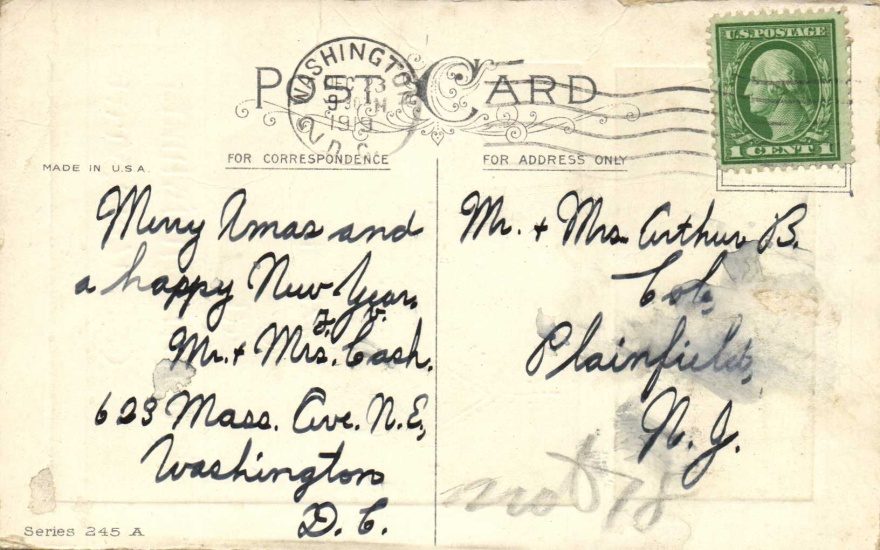 POST CARD
WASHINGTON
DEC 23
D.C.
U.S. POSTAGE
1 CENT 1
MADE IN U.S.A.
FOR CORRESPONDENCE
Merry Xmas and
a happy New Year,
Mr. + Mrs. Cash.
623 Mass. Ave. N.E,
Washington
D. C.
Series 245 A
FOR ADDRESS ONLY
Mr. + Mrs. Arthur B.
Cole,
Plainfield,
N. J.